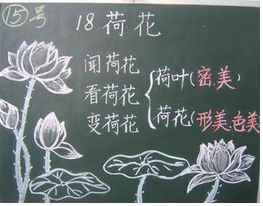 ⑮号
18.荷花
闻荷花
看荷花
变荷花
荷叶(密、美)
荷花(形美、色美